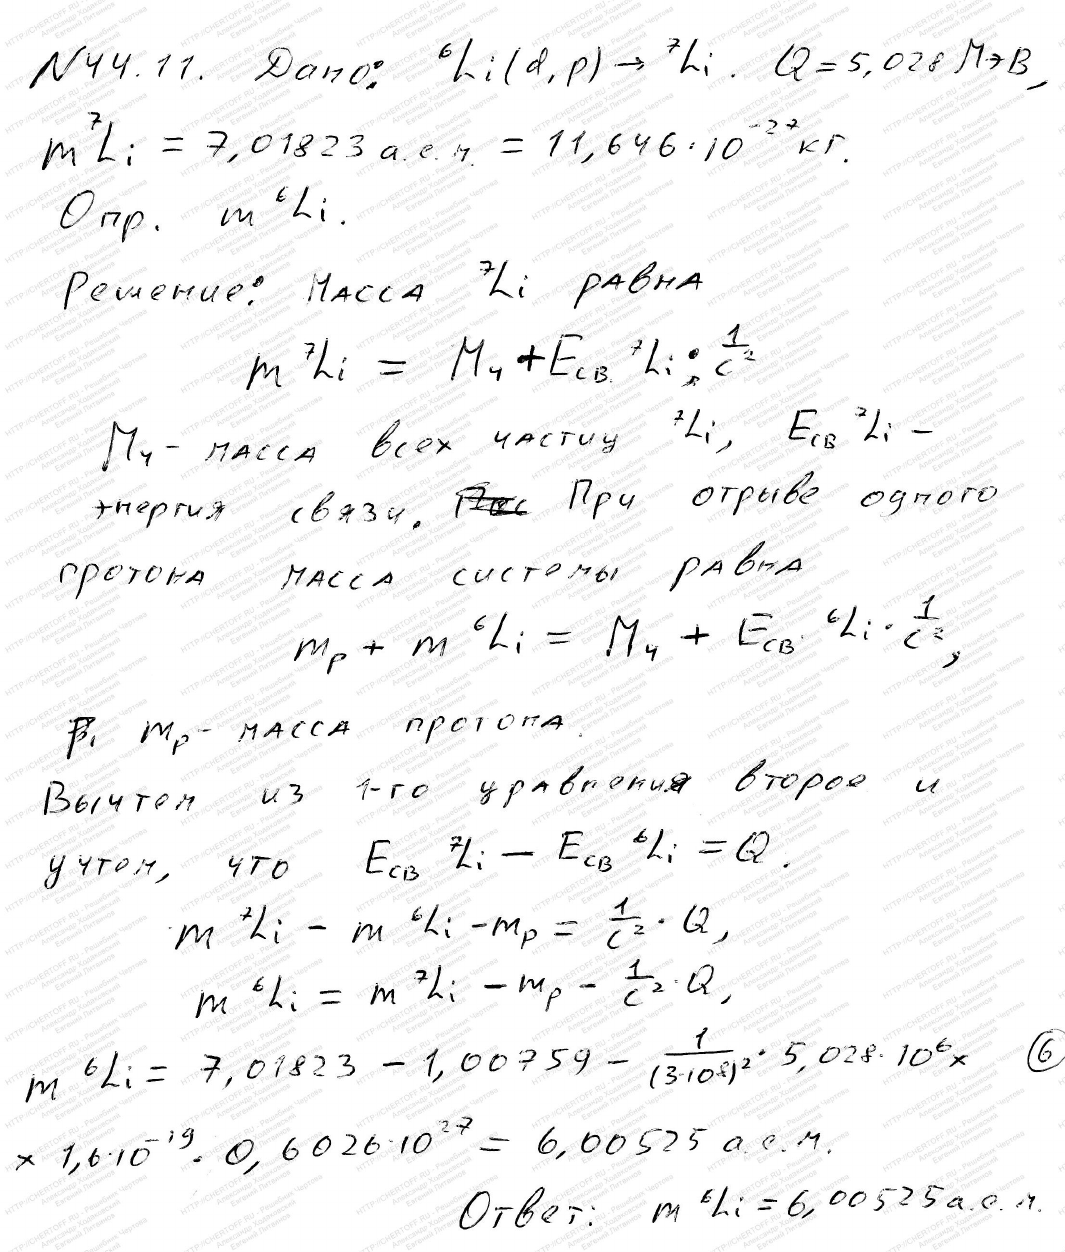 N44.11. Дано: ⁶Li(d,p)→⁷Li. Q=5,028 МэВ,
m ⁷Li = 7,01823 а.е.м. = 11,646·10⁻²⁷ кг.
Опр. m ⁶Li.
Решение: Масса ⁷Li равна
m ⁷Li = Mч + Eсв ⁷Li · 1/c²,
Mч – масса всех частиц ⁷Li, Eсв ⁷Li –
энергия связи. При отрыве одного
протона масса системы равна
mp + m ⁶Li = Mч + Eсв ⁶Li · 1/c²,
mp – масса протона.
Вычтем из 1-го уравнения второе и
учтем, что Eсв ⁷Li – Eсв ⁶Li = Q.
m ⁷Li – m ⁶Li – mp = 1/c² · Q,
m ⁶Li = m ⁷Li – mp – 1/c² · Q,
m ⁶Li = 7,01823 – 1,00759 – 1/(3·10⁸)² · 5,028·10⁶ × 6
× 1,6·10⁻¹⁹ · 0,6026·10²⁷ = 6,00525 а.е.м.
Ответ: m ⁶Li = 6,00525 а.е.м.